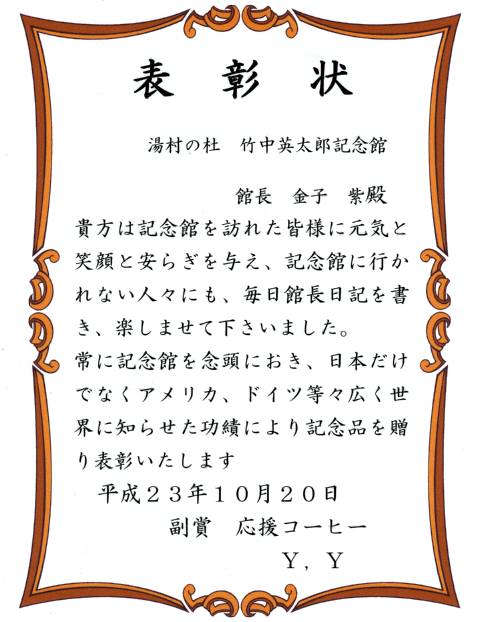 表 彰 状
湯村の杜　竹中英太郎記念館
館長　金子　紫殿
貴方は記念館を訪れた皆様に元気と
笑顔と安らぎを与え、記念館に行か
れない人々にも、毎日館長日記を書
き、楽しませて下さいました。
常に記念館を念頭におき、日本だけ
でなくアメリカ、ドイツ等々広く世
界に知らせた功績により記念品を贈
り表彰いたします
平成２３年１０月２０日
副賞　応援コーヒー
Ｙ，Ｙ